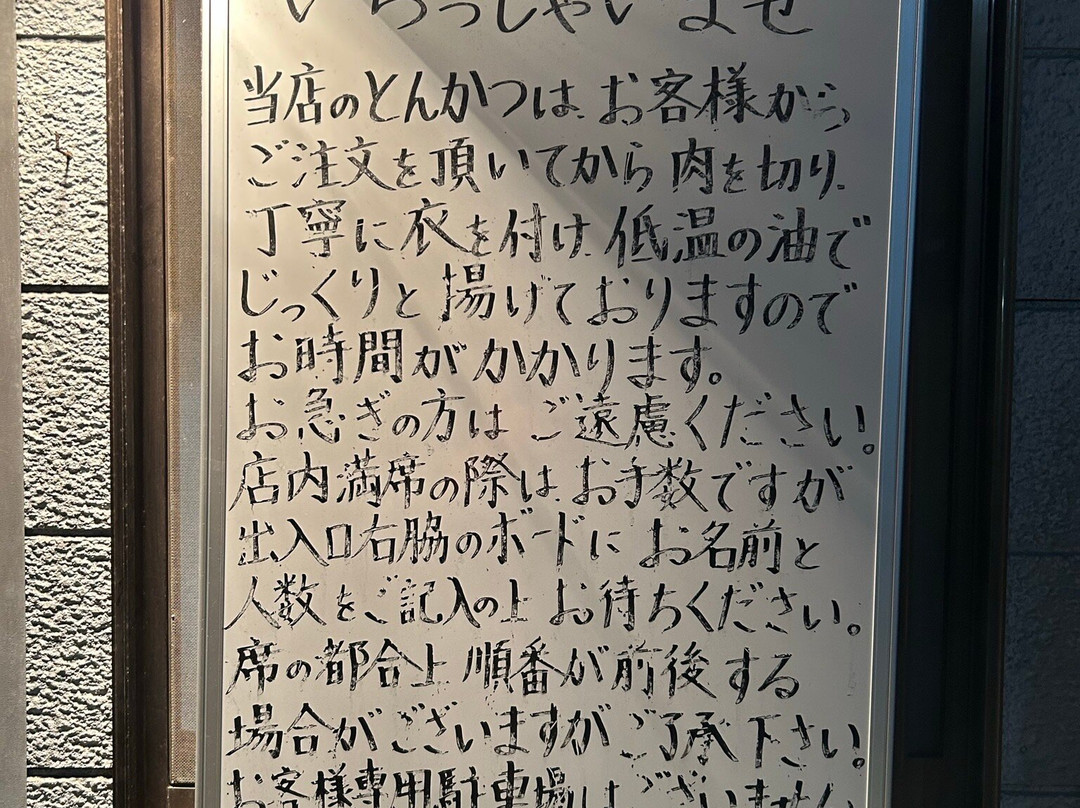 いらっしゃいませ
当店のとんかつは、お客様から
ご注文を頂いてから肉を切り、
丁寧に衣を付け、低温の油で
じっくりと揚げておりますので
お時間がかかります。
お急ぎの方はご遠慮ください。
店内満席の際は、お手数ですが
出入口右脇のボードにお名前と
人数をご記入の上お待ちください。
席の都合上順番が前後する
場合がございますがご了承下さい。
お客様専用駐車場はございません。